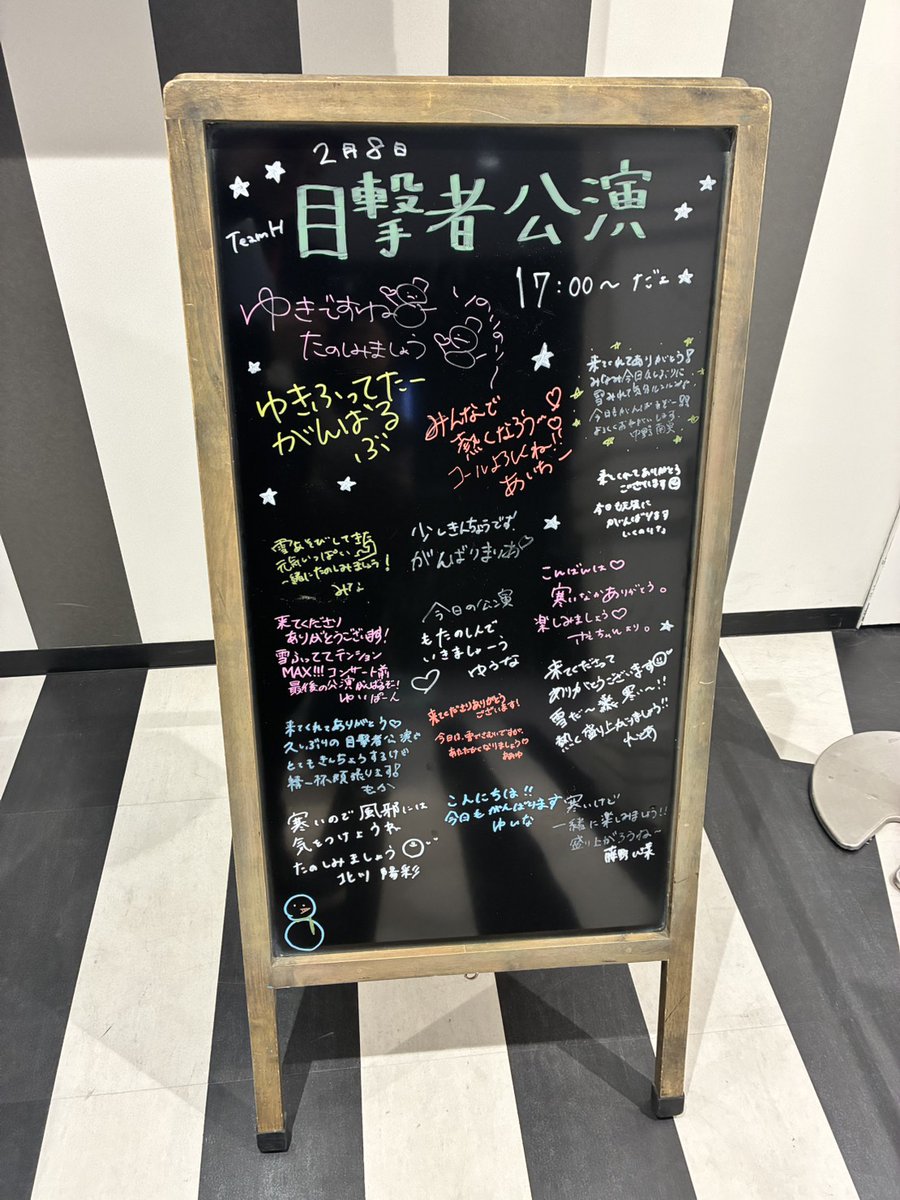 2月8日
TeamH
目撃者公演
17:00〜 だよ
ゆきですね
たのしみましょう
ゆきふってたー
がんばる
ぶ
みんなで
熱くなろう〜
コールよろしくね!!
あいちー
来てくれてありがとう
雪みれて気分ルンルン
今日もがんばるぞー
よろしくおねがいします
中野
来てくれてありがとう
ございます
本日も元気に
がんばります
いくのりな
雪あそびしてきた
元気いっぱい
一緒にたのしみましょう!
みな
少しきんちょうでず
がんばりまりあ♡
こんばんは♡
寒いなかありがとう。
楽しみましょう♡
さえちゃんより。
来てくださり
ありがとうございます!
雪ふっててテンション
MAX!!! コンサート前
最後の公演がんばるぞ!
ゆいぱーん
今日の公演
もたのしんで、
いきましょーう
ゆうな
来てくださって
ありがとうございます
雪だ〜寒い〜!!
熱く盛り上がりましょう!!
来てくれてありがとう♡
久しぶりの目撃者公演で
とてもきんちょうするけど
精一杯頑張ります
もか
来てくださりありがとう
ございます!
今日は、雪でさむいですが、
あたたかくなりましょう♡
寒いので風邪には
気をつけようね
たのしみましょう
北川 陽彩
こんにちは!!
今日もがんばります
ゆいな
寒いけど
一緒に楽しみましょう!!
盛り上がろうね〜
藤野 心菜